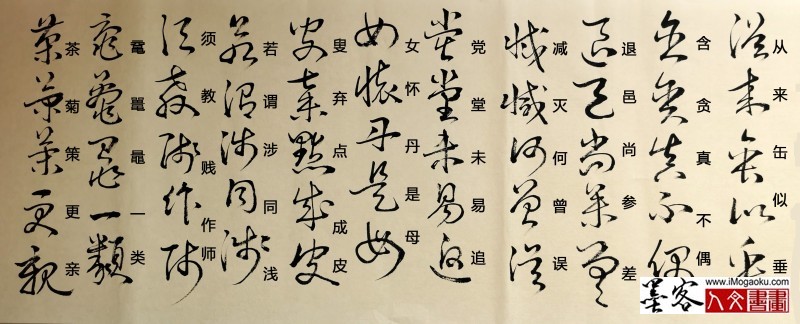 从来缶似垂
含贪真不偶
退邑尚参差
减灭何曾误
党堂未易追
女怀丹是母
叟弃点成皮
若谓涉同浅
须教贱作师
鼋一类
茶菊策更亲
www.iMogaoku.com
墨客
人文書畫